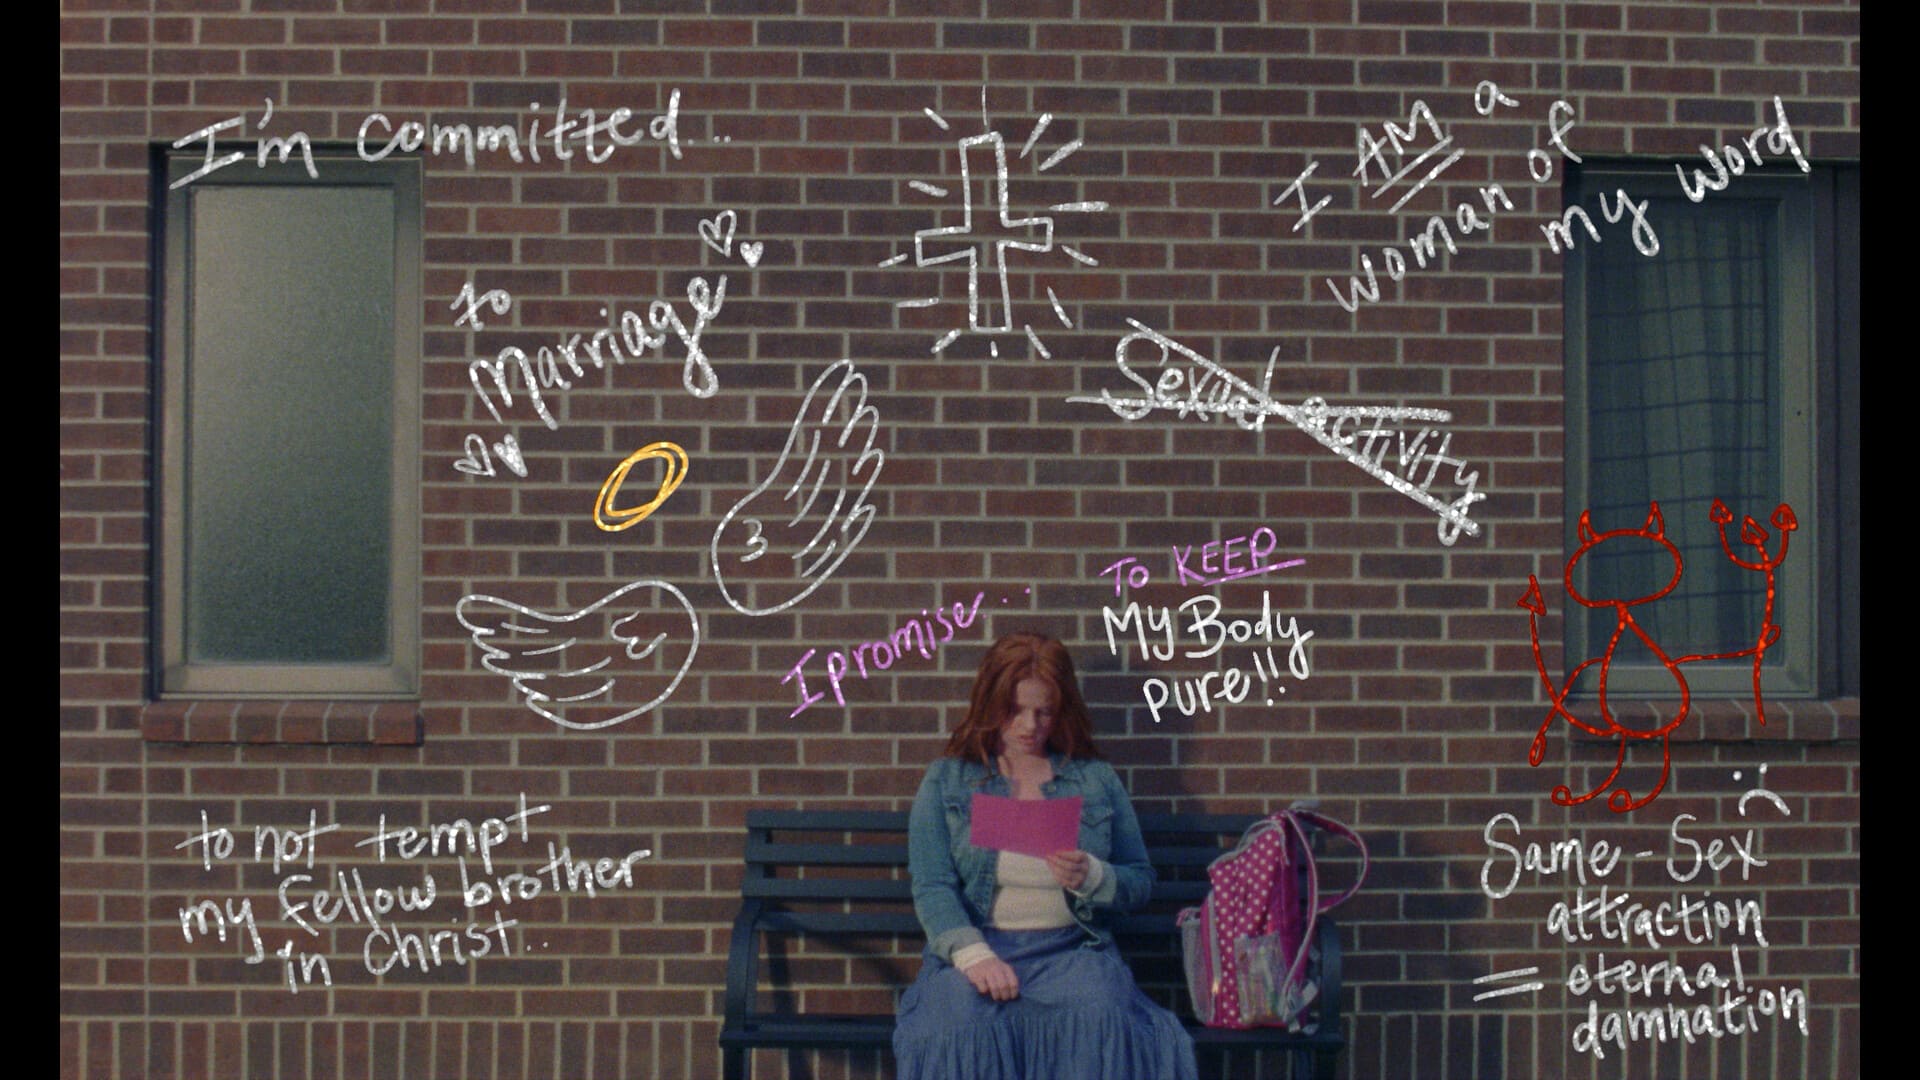 I'm committed...
to
Marriage
I AM a
woman of
my word
Sexual activity
I promise...
To KEEP
My Body
pure!!
to not tempt
my fellow brother
in Christ..
Same-Sex
attraction
= eternal
damnation